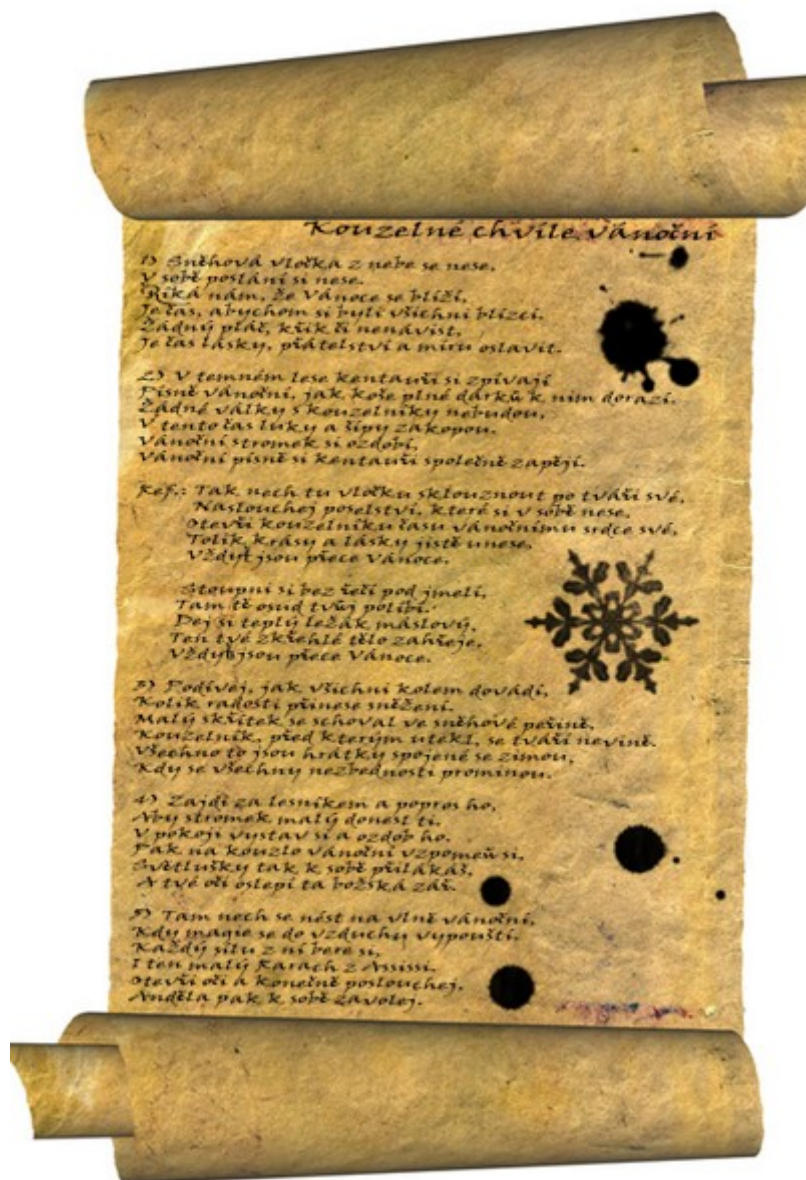 Kouzelné chvíle vánoční
1) Sněhová vločka z nebe se nese,
V sobě poslání si nese.
Říká nám, že Vánoce se blíží,
Je čas, abychom si byli všichni blízcí.
Žádný pláč, křik či nenávist,
Je čas lásky, přátelství a míru oslavit.
2) V temném lese kentauři si zpívají
Písně vánoční, jak koše plné dárků k nim dorazí.
Žádné války s kouzelníky nebudou,
V tento čas luky a šípy zakopou.
Vánoční stromek si ozdobí,
Vánoční písně si kentauři společně zapějí.
Ref.: Tak nech tu vločku sklouznout po tváři své,
Naslouchej poselství, které si v sobě nese,
Otevři kouzelníku času vánočnímu srdce své,
Tolik krásy a lásky jistě unese,
Vždyť jsou přece Vánoce.
Stoupni si bez řečí pod jmelí,
Tam tě osud tvůj políbí.
Dej si teplý ležák máslový,
Ten tvé zkřehlé tělo zahřeje,
Vždyť jsou přece Vánoce.
3) Podívej, jak všichni kolem dovádí,
Kolik radosti přinese sněžení.
Malý skřítek se schoval ve sněhové peřině,
Kouzelník, před kterým utekl, se tváří nevině.
Všechno to jsou hrátky spojené se zimou,
Kdy se všechny nezbednosti prominou.
4) Zajdi za lesníkem a popros ho,
Aby stromek malý donesl ti.
V pokoji vystav si a ozdob ho.
Pak na kouzlo vánoční vzpomeň si,
Světlušky tak k sobě přilákáš,
A tvé oči oslepí ta božská zář.
5) Tam nech se nést na vlně vánoční,
Kdy magie se do vzduchu vypouští.
Každý sílu z ní bere si,
I ten malý Rarach z Assissi.
Otevři oči a konečně poslouchej,
Anděla pak k sobě zavolej.